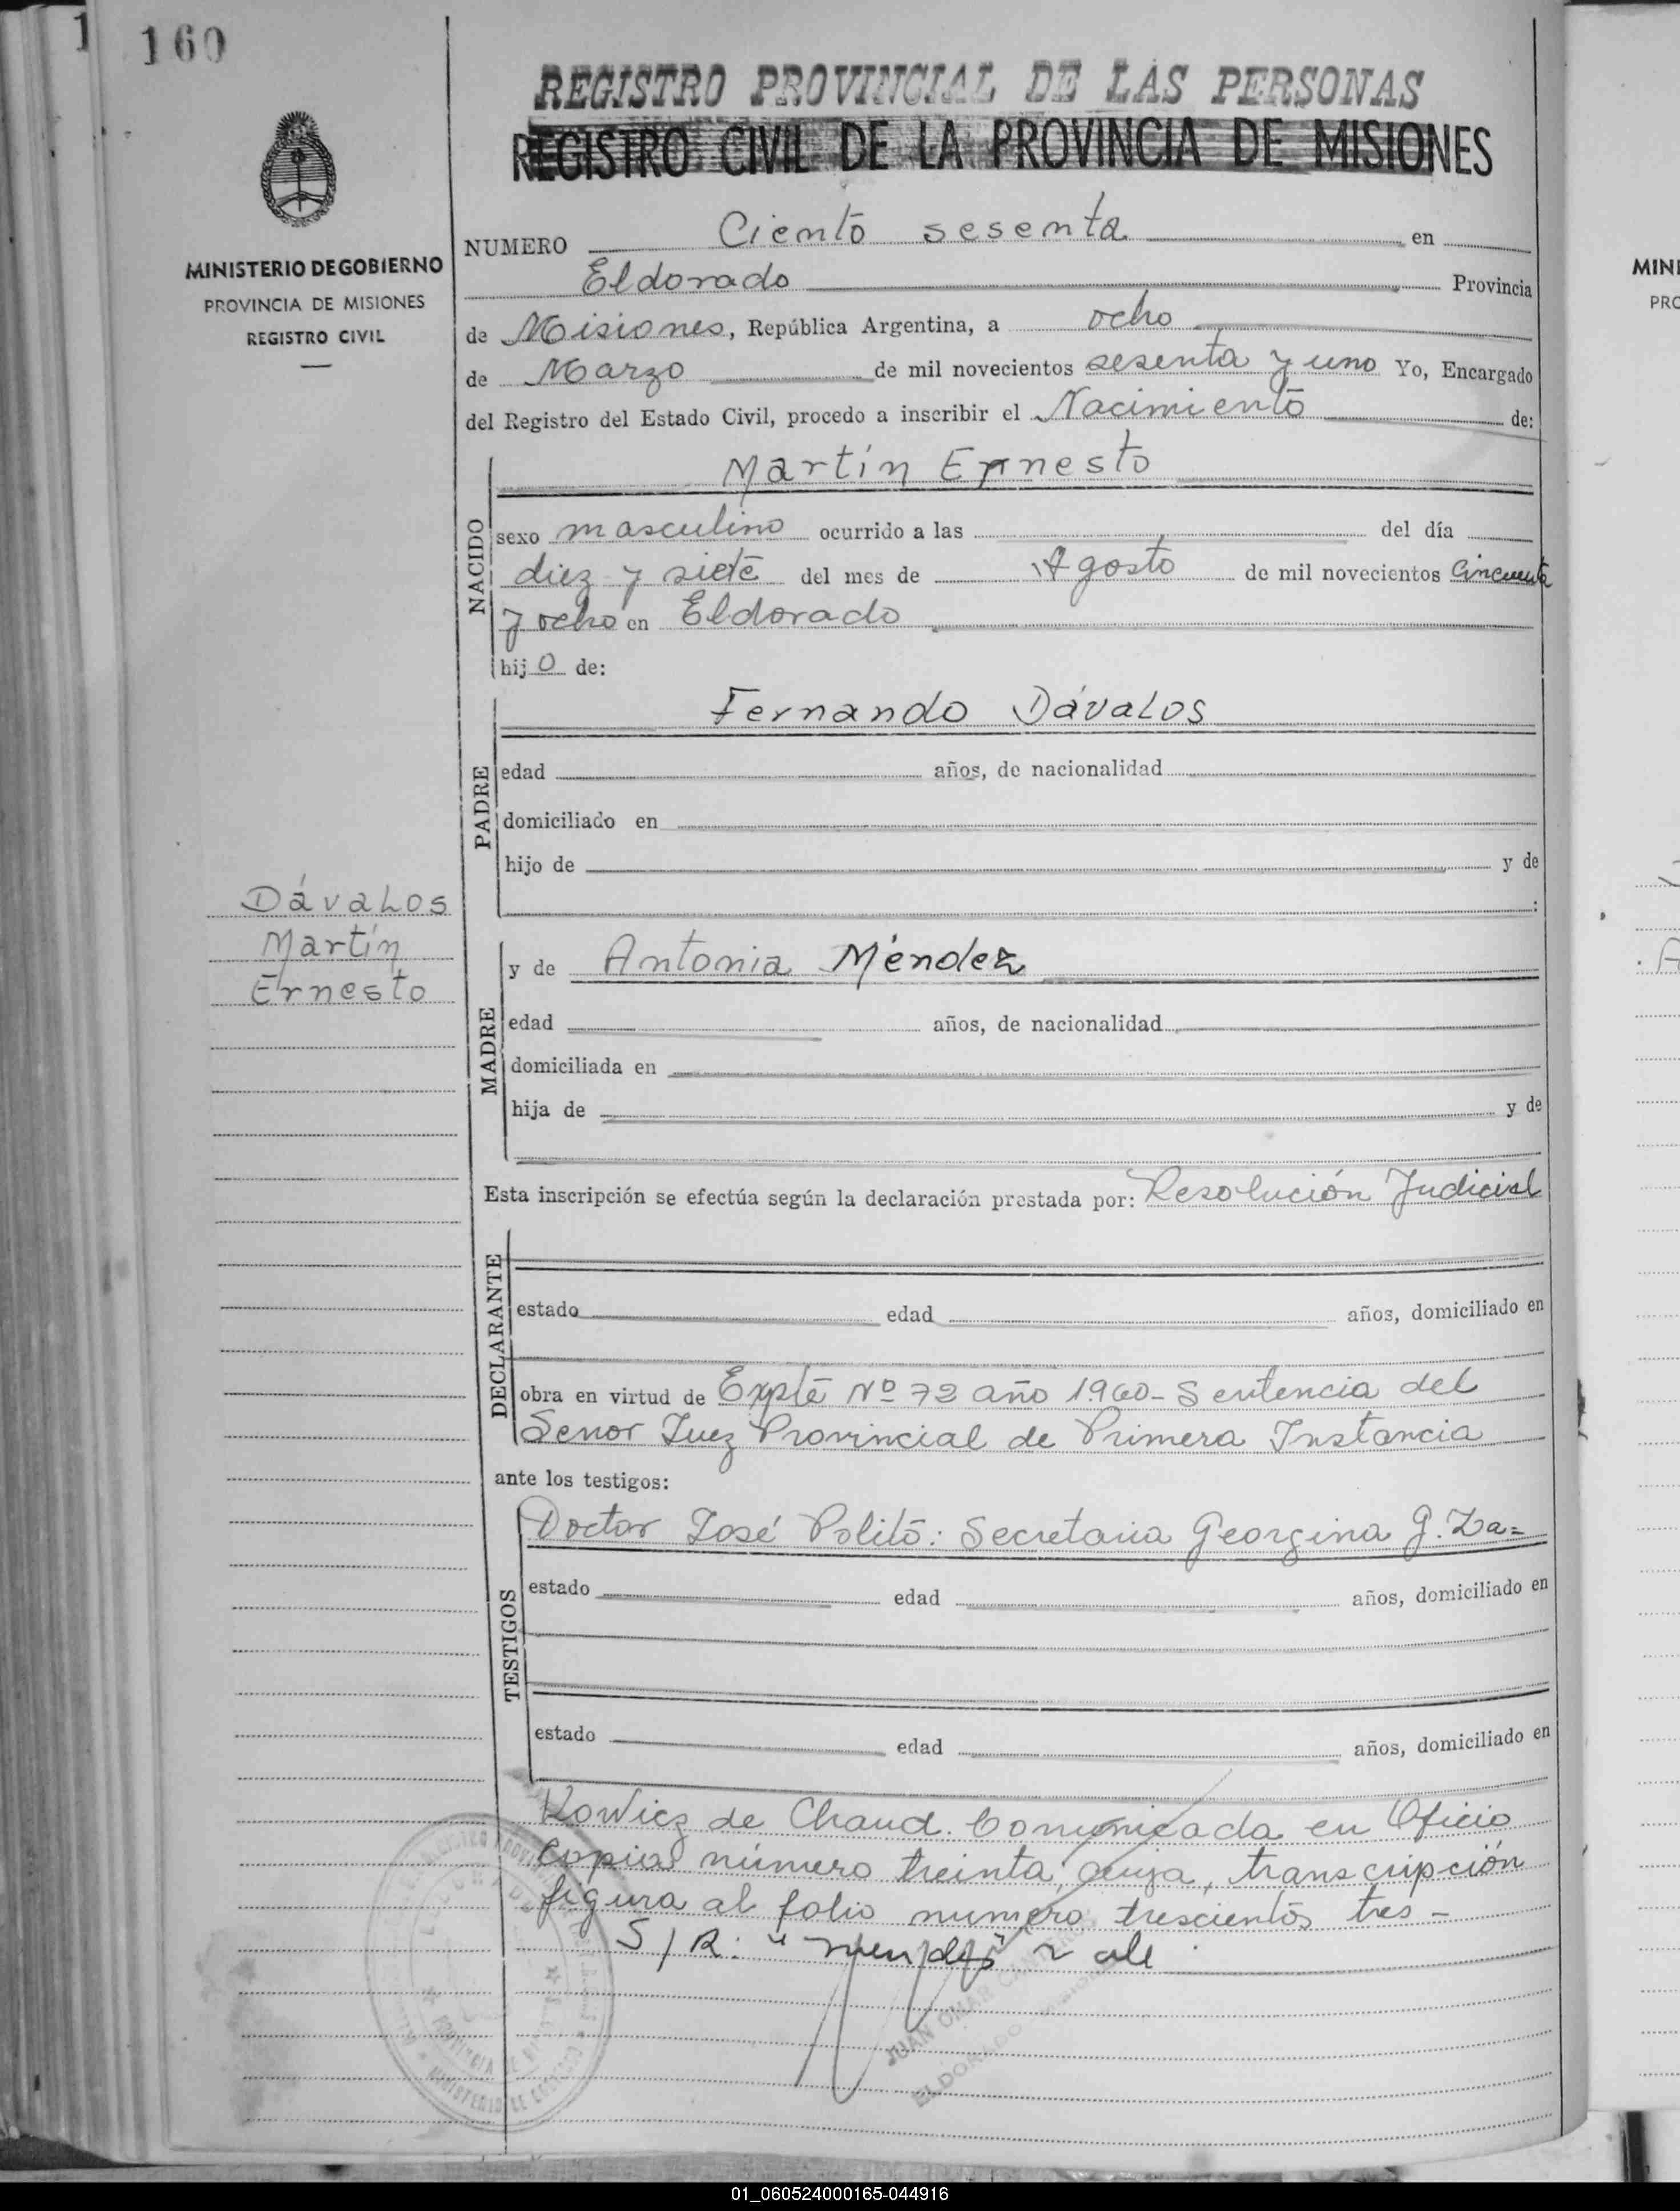 160
REGISTRO PROVINCIAL DE LAS PERSONAS
REGISTRO CIVIL DE LA PROVINCIA DE MISIONES
MINISTERIO DE GOBIERNO
PROVINCIA DE MISIONES
REGISTRO CIVIL
NUMERO Ciento sesenta en
Eldorado Provincia
de Misiones, República Argentina, a ocho
de Marzo de mil novecientos sesenta y uno Yo, Encargado
del Registro del Estado Civil, procedo a inscribir el Nacimiento de:
NACIDO
Martín Ernesto
sexo masculino ocurrido a las del día
diez y siete del mes de Agosto de mil novecientos Cincuenta
y ocho en Eldorado
hijo de:
PADRE
Fernando Dávalos
edad años, de nacionalidad
domiciliado en
hijo de y de
Dávalos
Martín
Ernesto
MADRE
y de Antonia Méndez
edad años, de nacionalidad
domiciliada en
hija de y de
Esta inscripción se efectúa según la declaración prestada por: Resolución Judicial
DECLARANTE
estado edad años, domiciliado en
obra en virtud de Expte Nº 72 año 1960 - Sentencia del
Senor Juez Provincial de Primera Instancia
ante los testigos:
TESTIGOS
Doctor José Polito: Secretaria Georgina G. Za=
estado edad años, domiciliado en
estado edad años, domiciliado en
Kowicz de Chaud. Comunicada en Oficio
Copia número treinta, cuya, transcripción
figura al folio numero trescientos tres -
S/R:
JUAN OMAR
ELDORADO
MINI
PRO
01_060524000165-044916